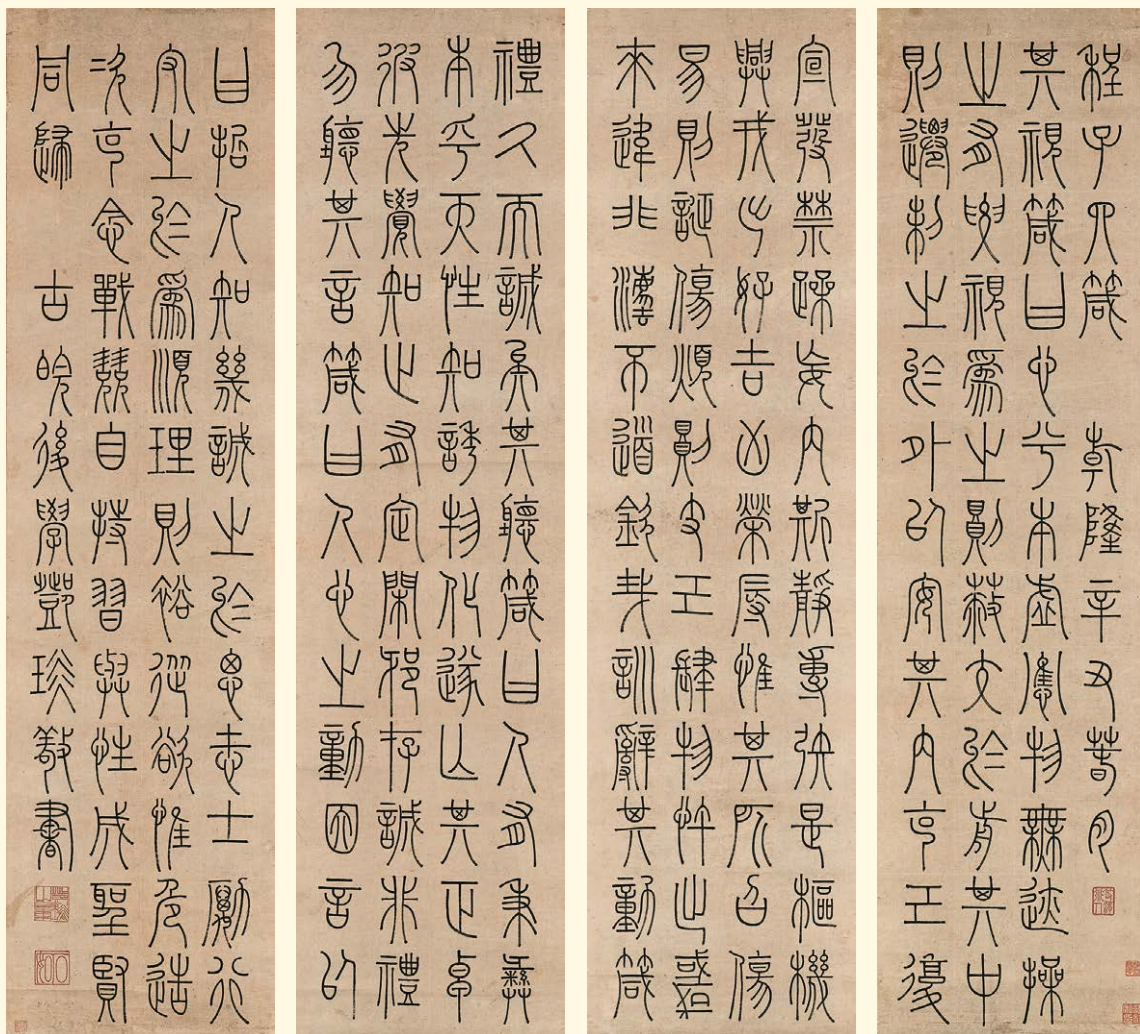 程子四箴 乾隆辛丑春月
其視箴曰心兮本虛應物無迹操
之有要視爲之則蔽交於前其中
則遷制之於外以安其內克己復
禮久而誠矣其聽箴曰人有秉彝
本乎天性知誘物化遂亡其正卓
彼先覺知止有定閑邪存誠非禮
勿聽其言箴曰人心之動因言以
宣發禁躁妄內斯靜專矧是樞機
興戎出好吉凶榮辱惟其所召傷
易則誕傷煩則支己肆物忤出悖
來違非法不道欽哉訓辭其動箴
曰哲人知幾誠之於思志士勵行
守之於爲順理則裕從欲惟危造
次克念戰兢自持習與性成聖賢
同歸 古皖後學鄧琰敬書